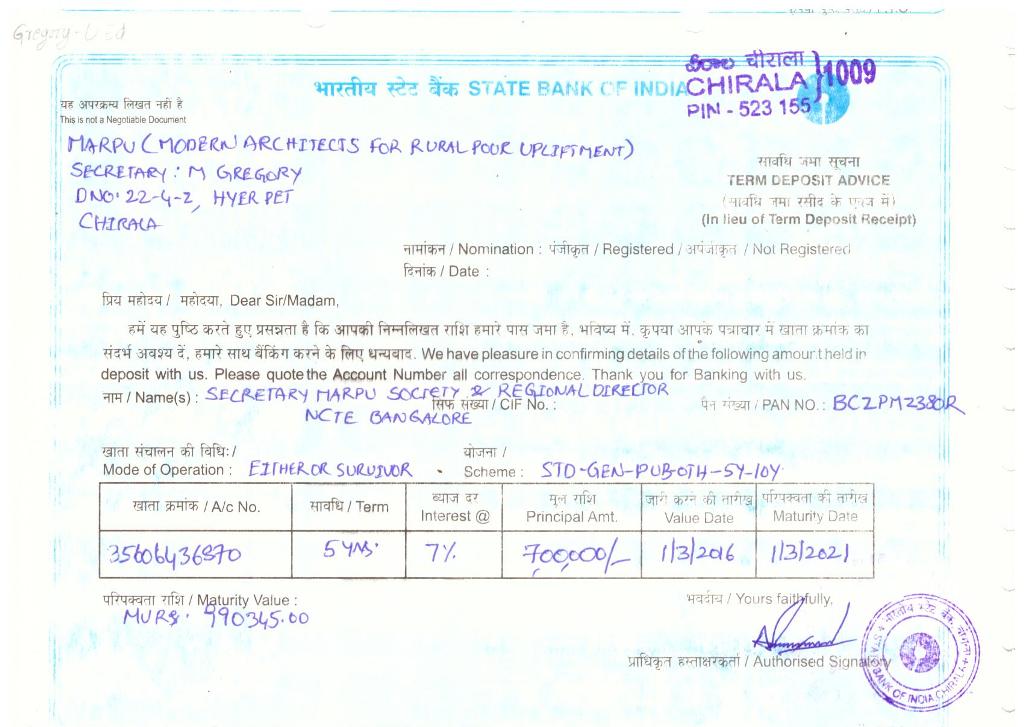 Gregory
భారత चीराला
CHIRALA } 1009
PIN - 523 155
भारतीय स्टेट बैंक STATE BANK OF INDIA
यह अपरक्रम्य लिखत नहीं है
This is not a Negotiable Document
MARPU (MODERN ARCHITECTS FOR RURAL POUR UPLIFTMENT)
SECRETARY : M GREGORY
DNO: 22-4-2, HYER PET
CHIRALA
सावधि जमा सूचना
TERM DEPOSIT ADVICE
(सावधि जमा रसीद के एवज में)
(In lieu of Term Deposit Receipt)
नामांकन / Nomination : पंजीकृत / Registered / अपंजीकृत / Not Registered
दिनांक / Date :
प्रिय महोदय / महोदया, Dear Sir/Madam,
हमें यह पुष्टि करते हुए प्रसन्नता है कि आपकी निम्नलिखत राशि हमारे पास जमा है, भविष्य में, कृपया आपके पत्राचार में खाता क्रमांक का
संदर्भ अवश्य दें, हमारे साथ बैंकिंग करने के लिए धन्यवाद. We have pleasure in confirming details of the following amount held in
deposit with us. Please quote the Account Number all correspondence. Thank you for Banking with us.
नाम / Name(s) : SECRETARY MARPU SOCIETY & REGIONAL DIRECTOR
NCTE BANGALORE
सिफ संख्या / CIF No. :
पैन संख्या / PAN NO. : BCZPM2380R
खाता संचालन की विधि: /
Mode of Operation : EITHER OR SURVIVOR
योजना /
Scheme : STD-GEN-PUB-OTH-5Y-10Y
खाता क्रमांक / A/c No. सावधि / Term ब्याज दर Interest @ मूल राशि Principal Amt. जारी करने की तारीख Value Date परिपक्वता की तारीख Maturity Date
35606436870 5 yrs. 7% 700,000/- 1/3/2016 1/3/2021
परिपक्वता राशि / Maturity Value :
MVRS. 990345.00
भवदीय / Yours faithfully,
प्राधिकृत हस्ताक्षरकर्ता / Authorised Signatory
भारतीय स्टेट बैंक, चीराला
STATE BANK OF INDIA CHIRALA